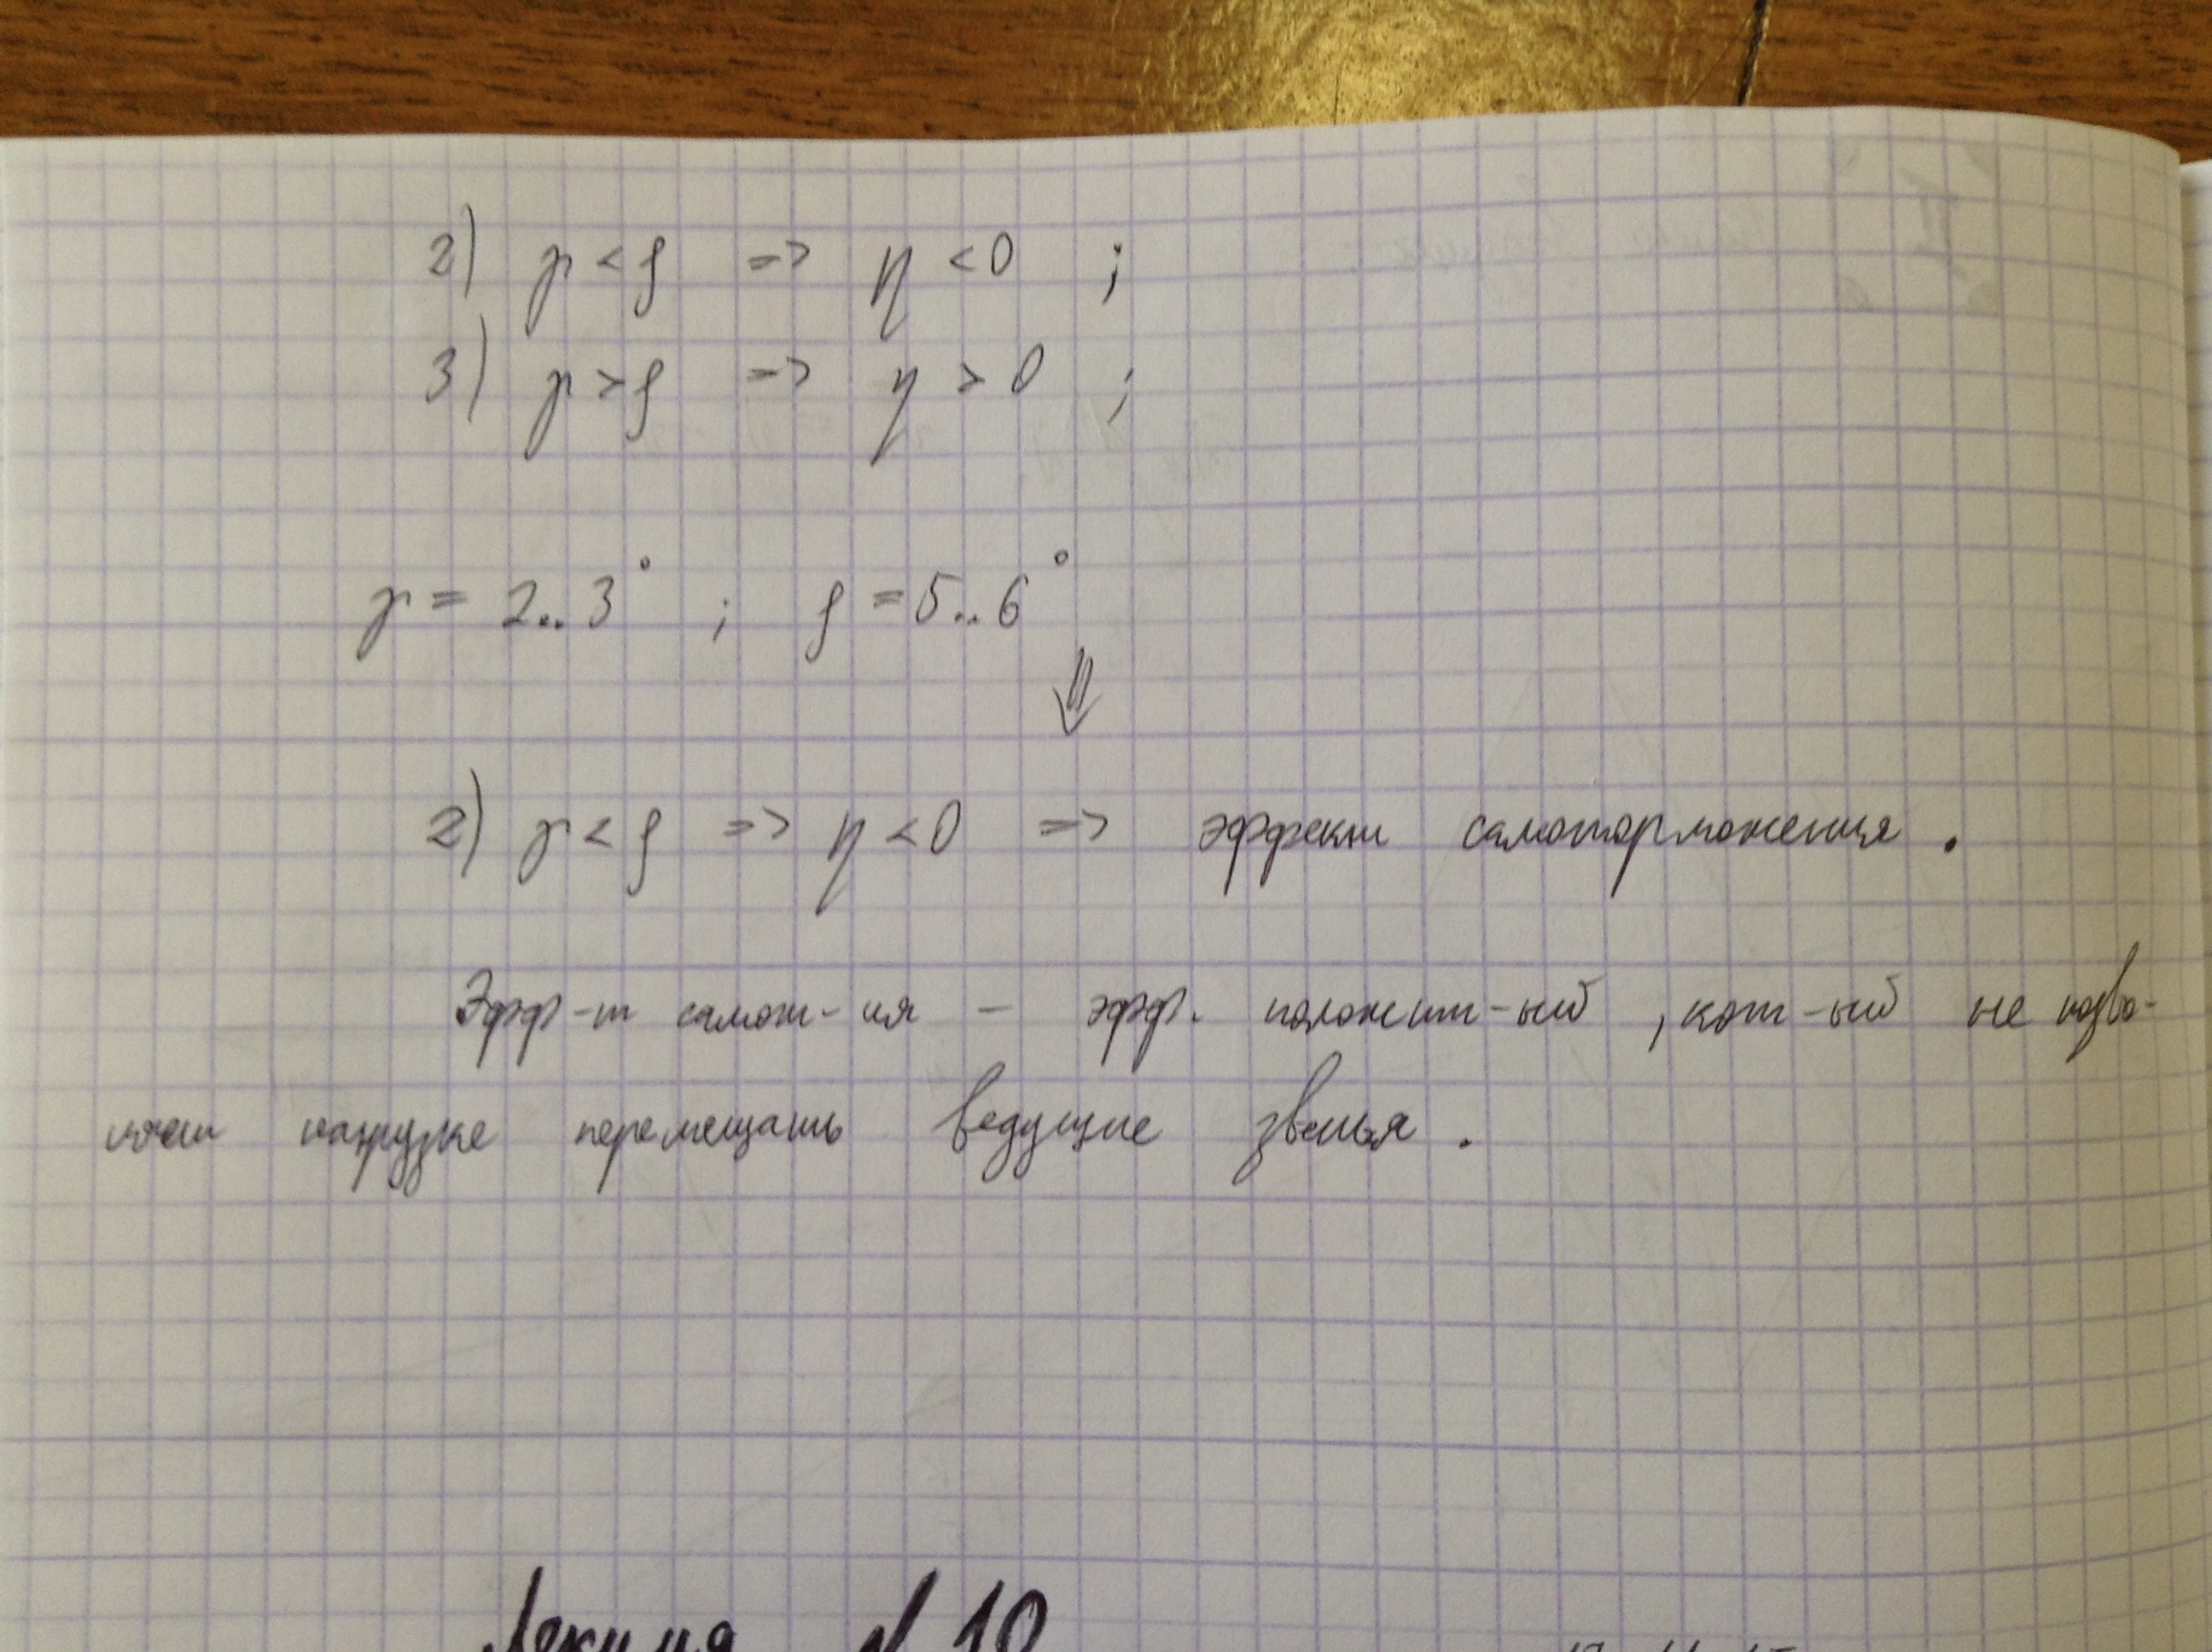 2) γ < ρ => η < 0 ;
3) γ > ρ => η > 0 ;
γ = 2..3° ; ρ = 5..6°
⇓
2) γ < ρ => η < 0 => эффект самоторможения .
Эфф-т самот-ия – эфф. положит-ый , кот-ый не позво-
ляет нагрузке перемещать ведущие звенья .
Лекция N 10